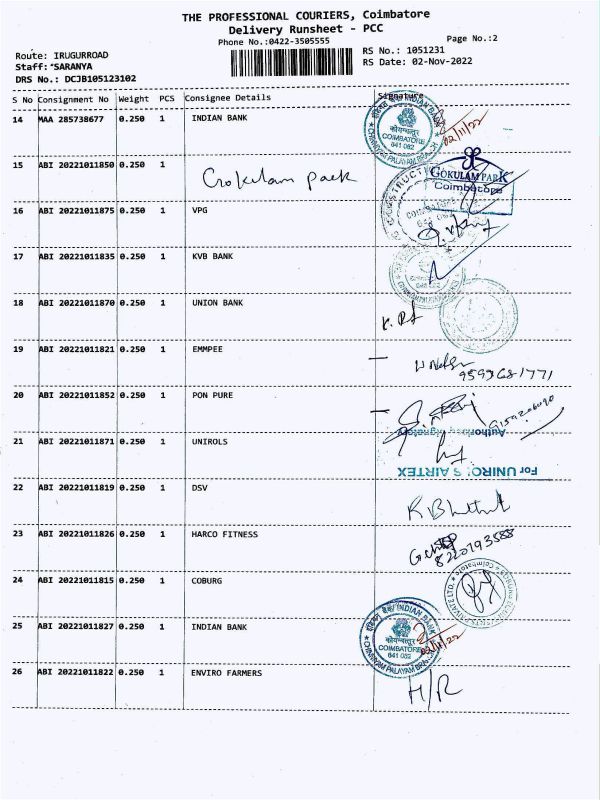 THE PROFESSIONAL COURIERS, Coimbatore
Delivery Runsheet - PCC
Phone No.:0422-3505555
Page No.:2
Route: IRUGURROAD
RS No.: 1051231
Staff: SARANYA
RS Date: 02-Nov-2022
DRS No.: DCJB105123102
S No Consignment No Weight PCS Consignee Details Signature
14 MAA 285738677 0.250 1 INDIAN BANK
COIMBATORE
641 062
02/11/22
15 ABI 20221011850 0.250 1 Gokulam park
GOKULAM PARK
Coimbatore
16 ABI 20221011875 0.250 1 VPG
17 ABI 20221011835 0.250 1 KVB BANK
18 ABI 20221011870 0.250 1 UNION BANK
19 ABI 20221011821 0.250 1 EMMPEE
20 ABI 20221011852 0.250 1 PON PURE
Authorised Signatory
21 ABI 20221011871 0.250 1 UNIROLS
For UNIROLS AIRTEX
22 ABI 20221011819 0.250 1 DSV
23 ABI 20221011826 0.250 1 HARCO FITNESS
8220793588
24 ABI 20221011815 0.250 1 COBURG
25 ABI 20221011827 0.250 1 INDIAN BANK
INDIAN BANK
कोयम्बत्तूर
COIMBATORE
641 062
02/11/22
26 ABI 20221011822 0.250 1 ENVIRO FARMERS
H/R